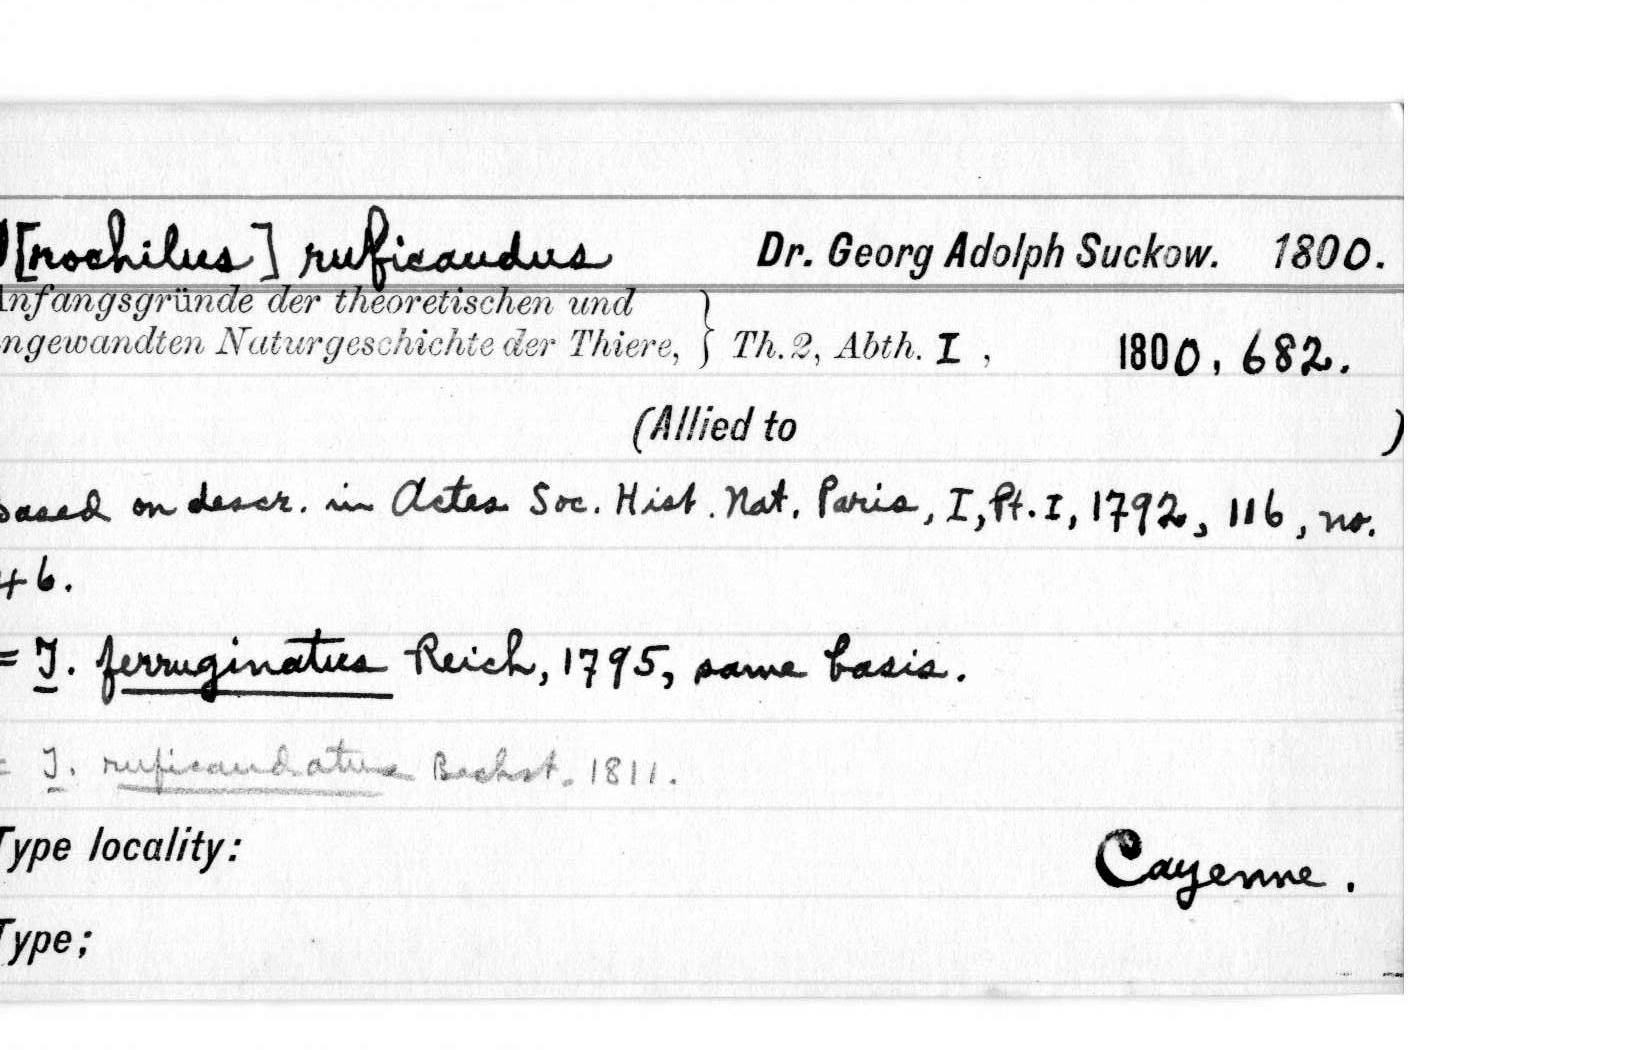 [rochilus] ruficaudus Dr. Georg Adolph Suckow. 1800.
nfangsgründe der theoretischen und
ngewandten Naturgeschichte der Thiere, } Th. 2, Abth. I, 1800, 682.
(Allied to )
based on descr. in Actes Soc. Hist. Nat. Paris, I, Pt. I, 1792, 116, no.
46.
= T. ferruginatus Reich, 1795, same basis.
= T. ruficaudatus Bechst. 1811.
Type locality: Cayenne.
Type;